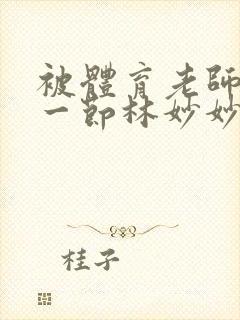 被體育老師
一節林妙妙
桂子